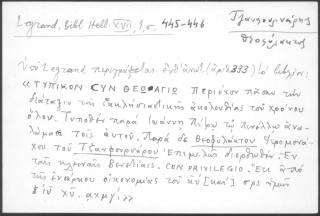 Legrand, Bibl. Hell. XVII, 1, σ. 445-446
Τζανφουρνάρης
Θεοφύλακτος
Ὑπὸ Legrand περιγράφεται ἐνθ' ἀνωτ. (ἀριθ. 333) τὸ βιβλίον:
«ΤΥΠΙΚΟΝ ΣΥΝ ΘΕΩ ΑΓΙΩ Περιέχον πᾶσαν τὴν
διάταξιν τῆς ἐκκλησιαστικῆς ἀκολουθίας τοῦ χρόνου
ὅλου. Τυποθὲν παρὰ Ἰωάννῃ Πέτρῳ τῷ Πινέλλῳ ἀνα-
λώμασι τοῖς αὐτοῦ. Παρὰ δὲ Θεοφυλάκτου Ἱερομονά-
χου τοῦ Τζανφουρνάρου Ἐπιμελῶς διορθωθέν. Ἐν
ταῖς κλειναῖς Βενετίαις. CON PRIVILEGIO. Ἔτει ἀπὸ
τῆς ἐνσάρκου οἰκονομίας τοῦ κυ [καὶ] σρς ἡμῶν
ἰυ χυ. αχμγ'.»